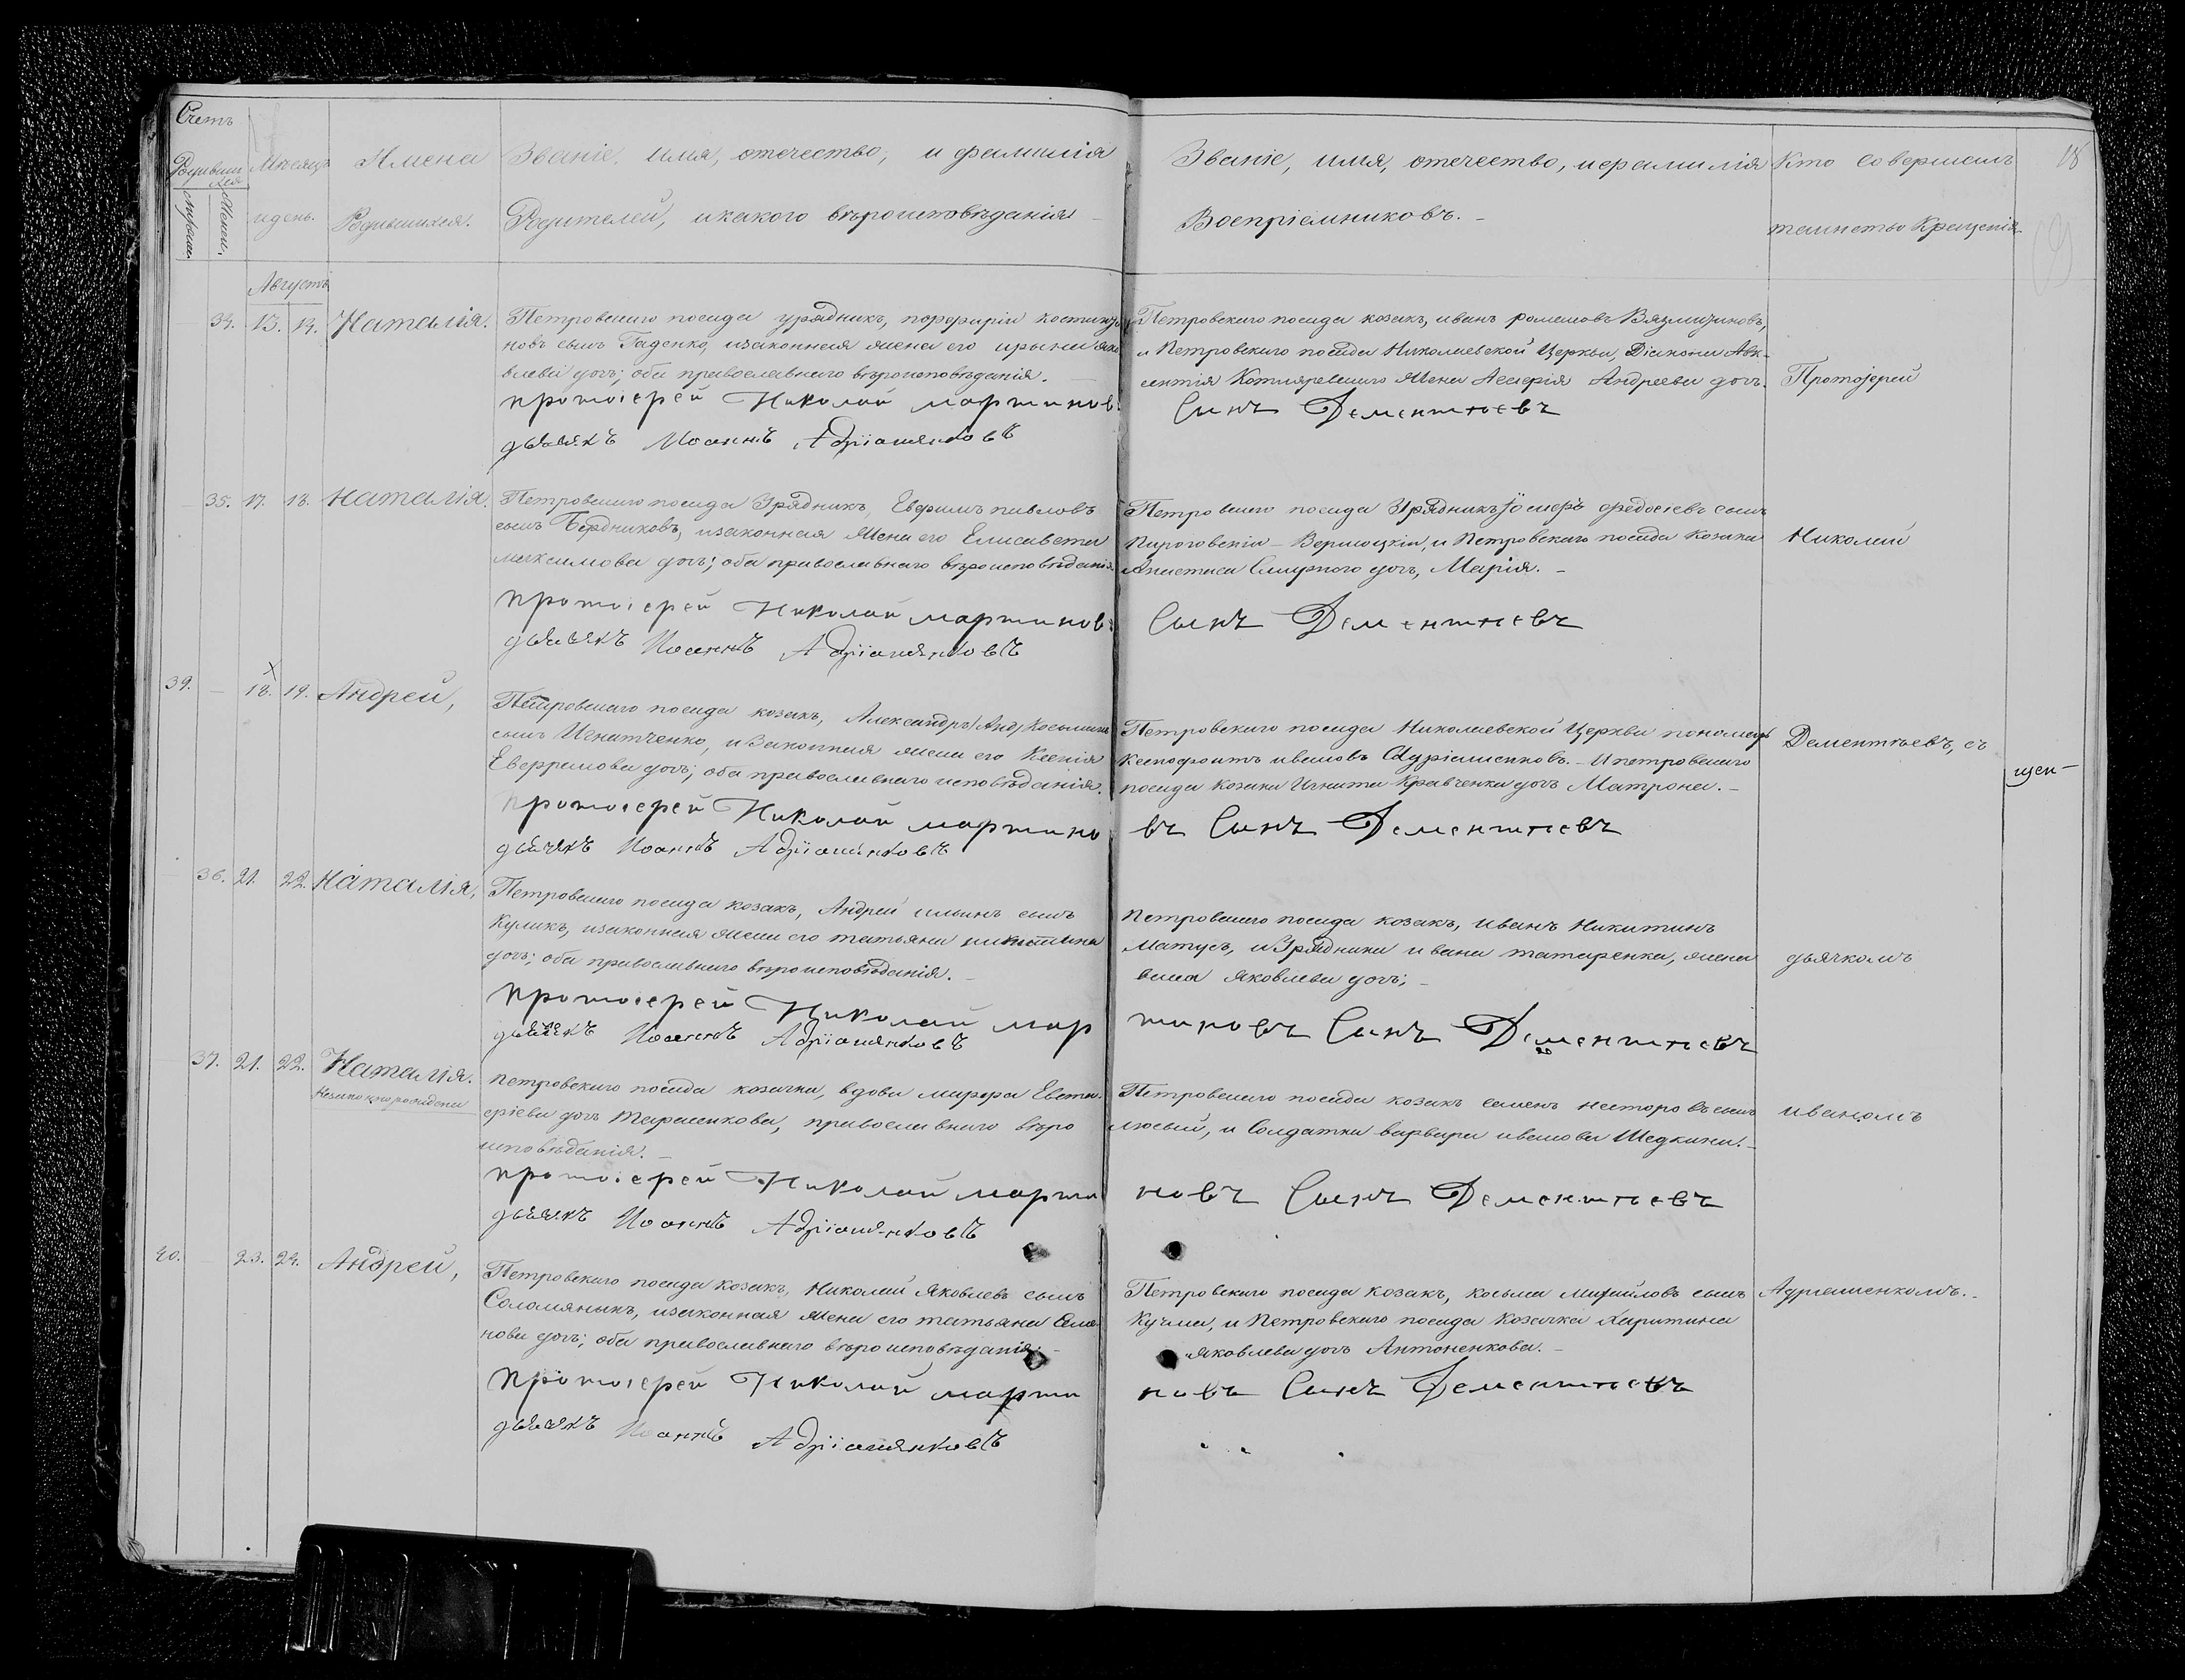 Счетъ
Родивших
ся
Мѣсяцъ
и день.
Имена
Родившихся.
Званіе имя, отечество, и фамилія
Родителей, и какого вѣроисповѣданія
Званіе, имя, отечество, и фамилія
Воспріемниковъ.
Кто совершалъ
таинство Крещенія
18
Августъ
34. 13. 14. Наталія.
Петровскаго посада урядникъ, порфирій костанти
новъ сынъ Гаденко, и законная жена его ирына яко
влева дочь; оба православнаго вѣроисповѣданія.
протоіерей Николай мартинов
дьячекъ Иоаннъ Адріашенковъ
Петровскаго посада козакъ, иванъ романовъ
и Петровскаго посада Николаевской Церкви, Діакона Авк-
сентія Котляревскаго жена Андреева дочь.
Сынъ Дементьевъ
Протоіерей
35. 17. 18. Наталія.
Петровскаго посада Урядникъ, Евфимъ павловъ
сынъ Бердниковъ, и законная жена его Елисавета
максимова дочь; оба православнаго вѣроисповѣданія.
протоіерей Николай мартинов
дьячекъ Иоаннъ Адріашенковъ
Петровскаго посада Урядникъ федосіевъ сынъ
и Петровскаго посада козака
Анастаса Смирного дочь, Марія.
Сынъ Дементьевъ
Николай
39. 18. 19. Андрей,
Петровскаго посада козакъ, Александръ Косьминъ
сынъ Игнатченко, и законная жена его Ксенія
Евфремова дочь; оба православнаго исповѣданія.
протоіерей Николай мартино
дьячекъ Иоаннъ Адріашенковъ
Петровскаго посада Николаевской Церкви пономарь
Ксенофонтъ ивановъ Адріашенковъ. и петровскаго
посада козака Игната Кравченка дочь Матрона.
въ Сынъ Дементьевъ
Дементьевъ, съ
36. 21. 22. Наталія,
Петровскаго посада козакъ, Андрей ильинъ сынъ
Куликъ, и законная жена его татьяна никитина
дочь; оба православнаго вѣроисповѣданія.
протоіерей Николай мар
дьячекъ Иоаннъ Адріашенковъ
Петровскаго посада козакъ, иванъ Никитинъ
Матусъ, и Урядника ивана татаренка, жена
яковлева дочь;
тиновъ Сынъ Дементьевъ
дьячкомъ
37. 21. 22. Наталія.
Незаконнорождена
петровскаго посада козачка, вдова марфа Евста-
фіева дочь Тарасенкова, православнаго вѣро
исповѣданія.
протоіерей Николай марти
дьячекъ Иоаннъ Адріашенковъ
Петровскаго посада козакъ семенъ несторовъ сынъ
и Солдатка варвара иванова Шедкина.
новъ Сынъ Дементьевъ
иваномъ
40. 23. 24. Андрей,
Петровскаго посада козакъ, Николай Яковлевъ сынъ
Соломяныкъ, и законная жена его татьяна Семе
нова дочь; оба православнаго вѣроисповѣданія.
протоіерей Николай марти
дьячекъ Иоаннъ Адріашенковъ
Петровскаго посада козакъ, косьма михайловъ сынъ
Кучма, и петровскаго посада козачка Харитина
яковлева дочь Антоненкова.
новъ Сынъ Дементьевъ
Адріашенкомъ.